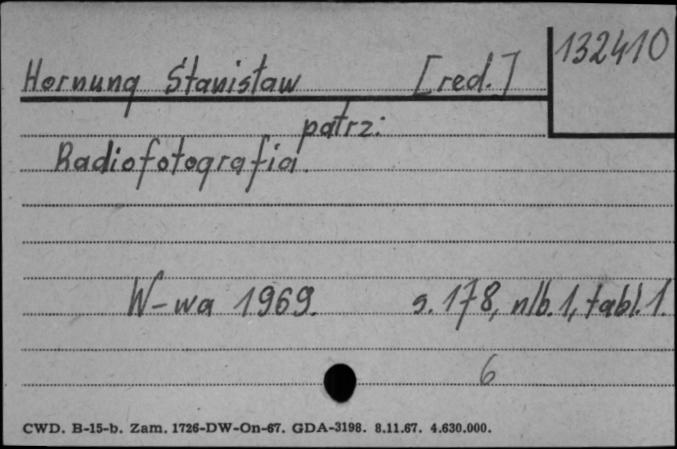 132410
Hornung Stanisław [red.]
patrz:
Radiofotografia.
W-wa 1969. s. 178, nlb. 1, tabl. 1.
6
CWD. B-15-b. Zam. 1726-DW-On-67. GDA-3198. 8.11.67. 4.630.000.